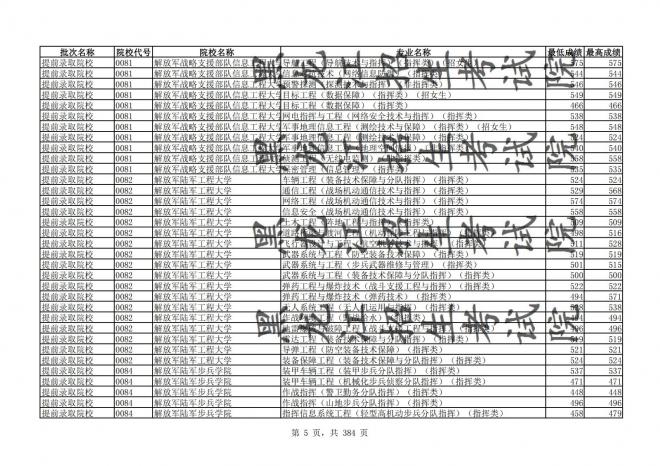 批次名称 院校代号 院校名称 专业名称 最低成绩 最高成绩
提前录取院校 0081 解放军战略支援部队信息工程大学 导航工程（导航技术与指挥）（指挥类）（招女生） 575 575
提前录取院校 0081 解放军战略支援部队信息工程大学 544 544
提前录取院校 0081 解放军战略支援部队信息工程大学 546 546
提前录取院校 0081 解放军战略支援部队信息工程大学 目标工程（数据保障）（指挥类）（招女生） 549 549
提前录取院校 0081 解放军战略支援部队信息工程大学 目标工程（数据保障）（指挥类） 466 466
提前录取院校 0081 解放军战略支援部队信息工程大学 网电指挥与工程（网络安全技术与指挥）（指挥类） 538 538
提前录取院校 0081 解放军战略支援部队信息工程大学 军事地理信息工程（测绘技术与保障）（指挥类）（招女生） 548 548
提前录取院校 0081 解放军战略支援部队信息工程大学 540
提前录取院校 0081 解放军战略支援部队信息工程大学 540
提前录取院校 0081 解放军战略支援部队信息工程大学 558
提前录取院校 0081 解放军战略支援部队信息工程大学 535
提前录取院校 0082 解放军陆军工程大学 车辆工程（装备技术保障与分队指挥）（指挥类） 524 524
提前录取院校 0082 解放军陆军工程大学 通信工程（战场机动通信技术与指挥）（指挥类） 529 568
提前录取院校 0082 解放军陆军工程大学 网络工程（战场机动通信技术与指挥）（指挥类） 574 574
提前录取院校 0082 解放军陆军工程大学 信息安全（战场机动通信技术与指挥）（指挥类） 558 558
提前录取院校 0082 解放军陆军工程大学 509
提前录取院校 0082 解放军陆军工程大学 516
提前录取院校 0082 解放军陆军工程大学 511 528
提前录取院校 0082 解放军陆军工程大学 武器系统与工程（防空装备技术保障）（指挥类） 519
提前录取院校 0082 解放军陆军工程大学 武器系统与工程（步兵武器维修与管理）（指挥类） 501 515
提前录取院校 0082 解放军陆军工程大学 武器系统与工程（装备技术保障与分队指挥）（指挥类） 500 500
提前录取院校 0082 解放军陆军工程大学 弹药工程与爆炸技术（战斗支援工程与指挥）（指挥类） 522 522
提前录取院校 0082 解放军陆军工程大学 弹药工程与爆炸技术（弹药技术）（指挥类） 494 571
提前录取院校 0082 解放军陆军工程大学 538
提前录取院校 0082 解放军陆军工程大学 494
提前录取院校 0082 解放军陆军工程大学 496
提前录取院校 0082 解放军陆军工程大学 雷达工程（装备技术保障与分队指挥）（指挥类） 519
提前录取院校 0082 解放军陆军工程大学 导弹工程（防空装备技术保障）（指挥类） 521 521
提前录取院校 0082 解放军陆军工程大学 装备保障工程（装备技术保障与分队指挥）（指挥类） 524 524
提前录取院校 0084 解放军陆军步兵学院 装甲车辆工程（装甲步兵分队指挥）（指挥类） 537 537
提前录取院校 0084 解放军陆军步兵学院 装甲车辆工程（机械化步兵侦察分队指挥）（指挥类） 471 471
提前录取院校 0084 解放军陆军步兵学院 作战指挥（警卫勤务分队指挥）（指挥类） 448 448
提前录取院校 0084 解放军陆军步兵学院 作战指挥（山地步兵分队指挥）（指挥类） 496 496
提前录取院校 0084 解放军陆军步兵学院 指挥信息系统工程（轻型高机动步兵分队指挥）（指挥类） 458 479
第 5 页，共 384 页
黑龙江招生考试院
黑龙江招生考试院